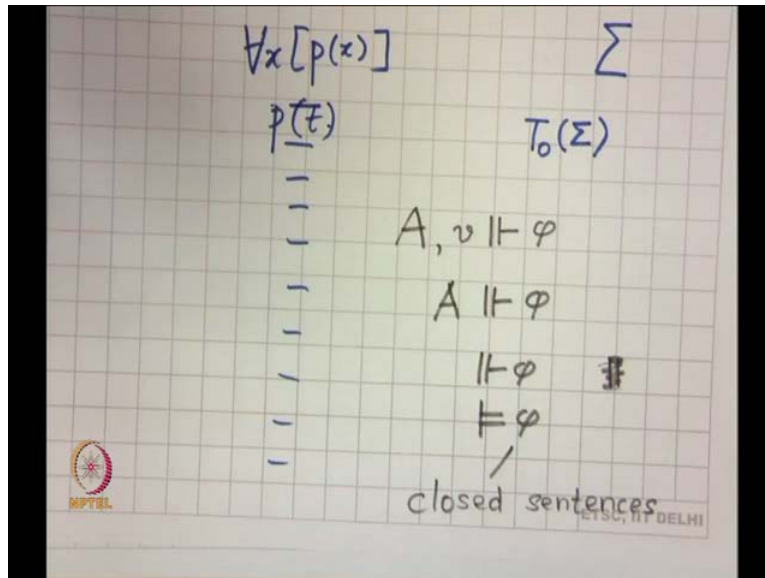 ∀x[p(x)] Σ
p(t) T₀(Σ)
A, v ⊩ φ
A ⊩ φ
⊩ φ
⊨ φ
closed sentences
NPTEL
ETSC, IIT DELHI